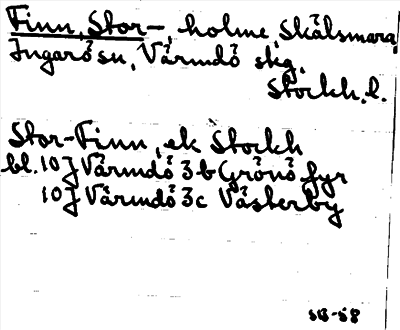 Finn, Stor-, holme, Skälsmara,
Ingarö sn, Värmdö skg.
Stockh. l.
Stor-Finn, ek Stockh
bl. 10 J Värmdö 3b Grönö fyr
10 J Värmdö 3c Västerby
SB-58